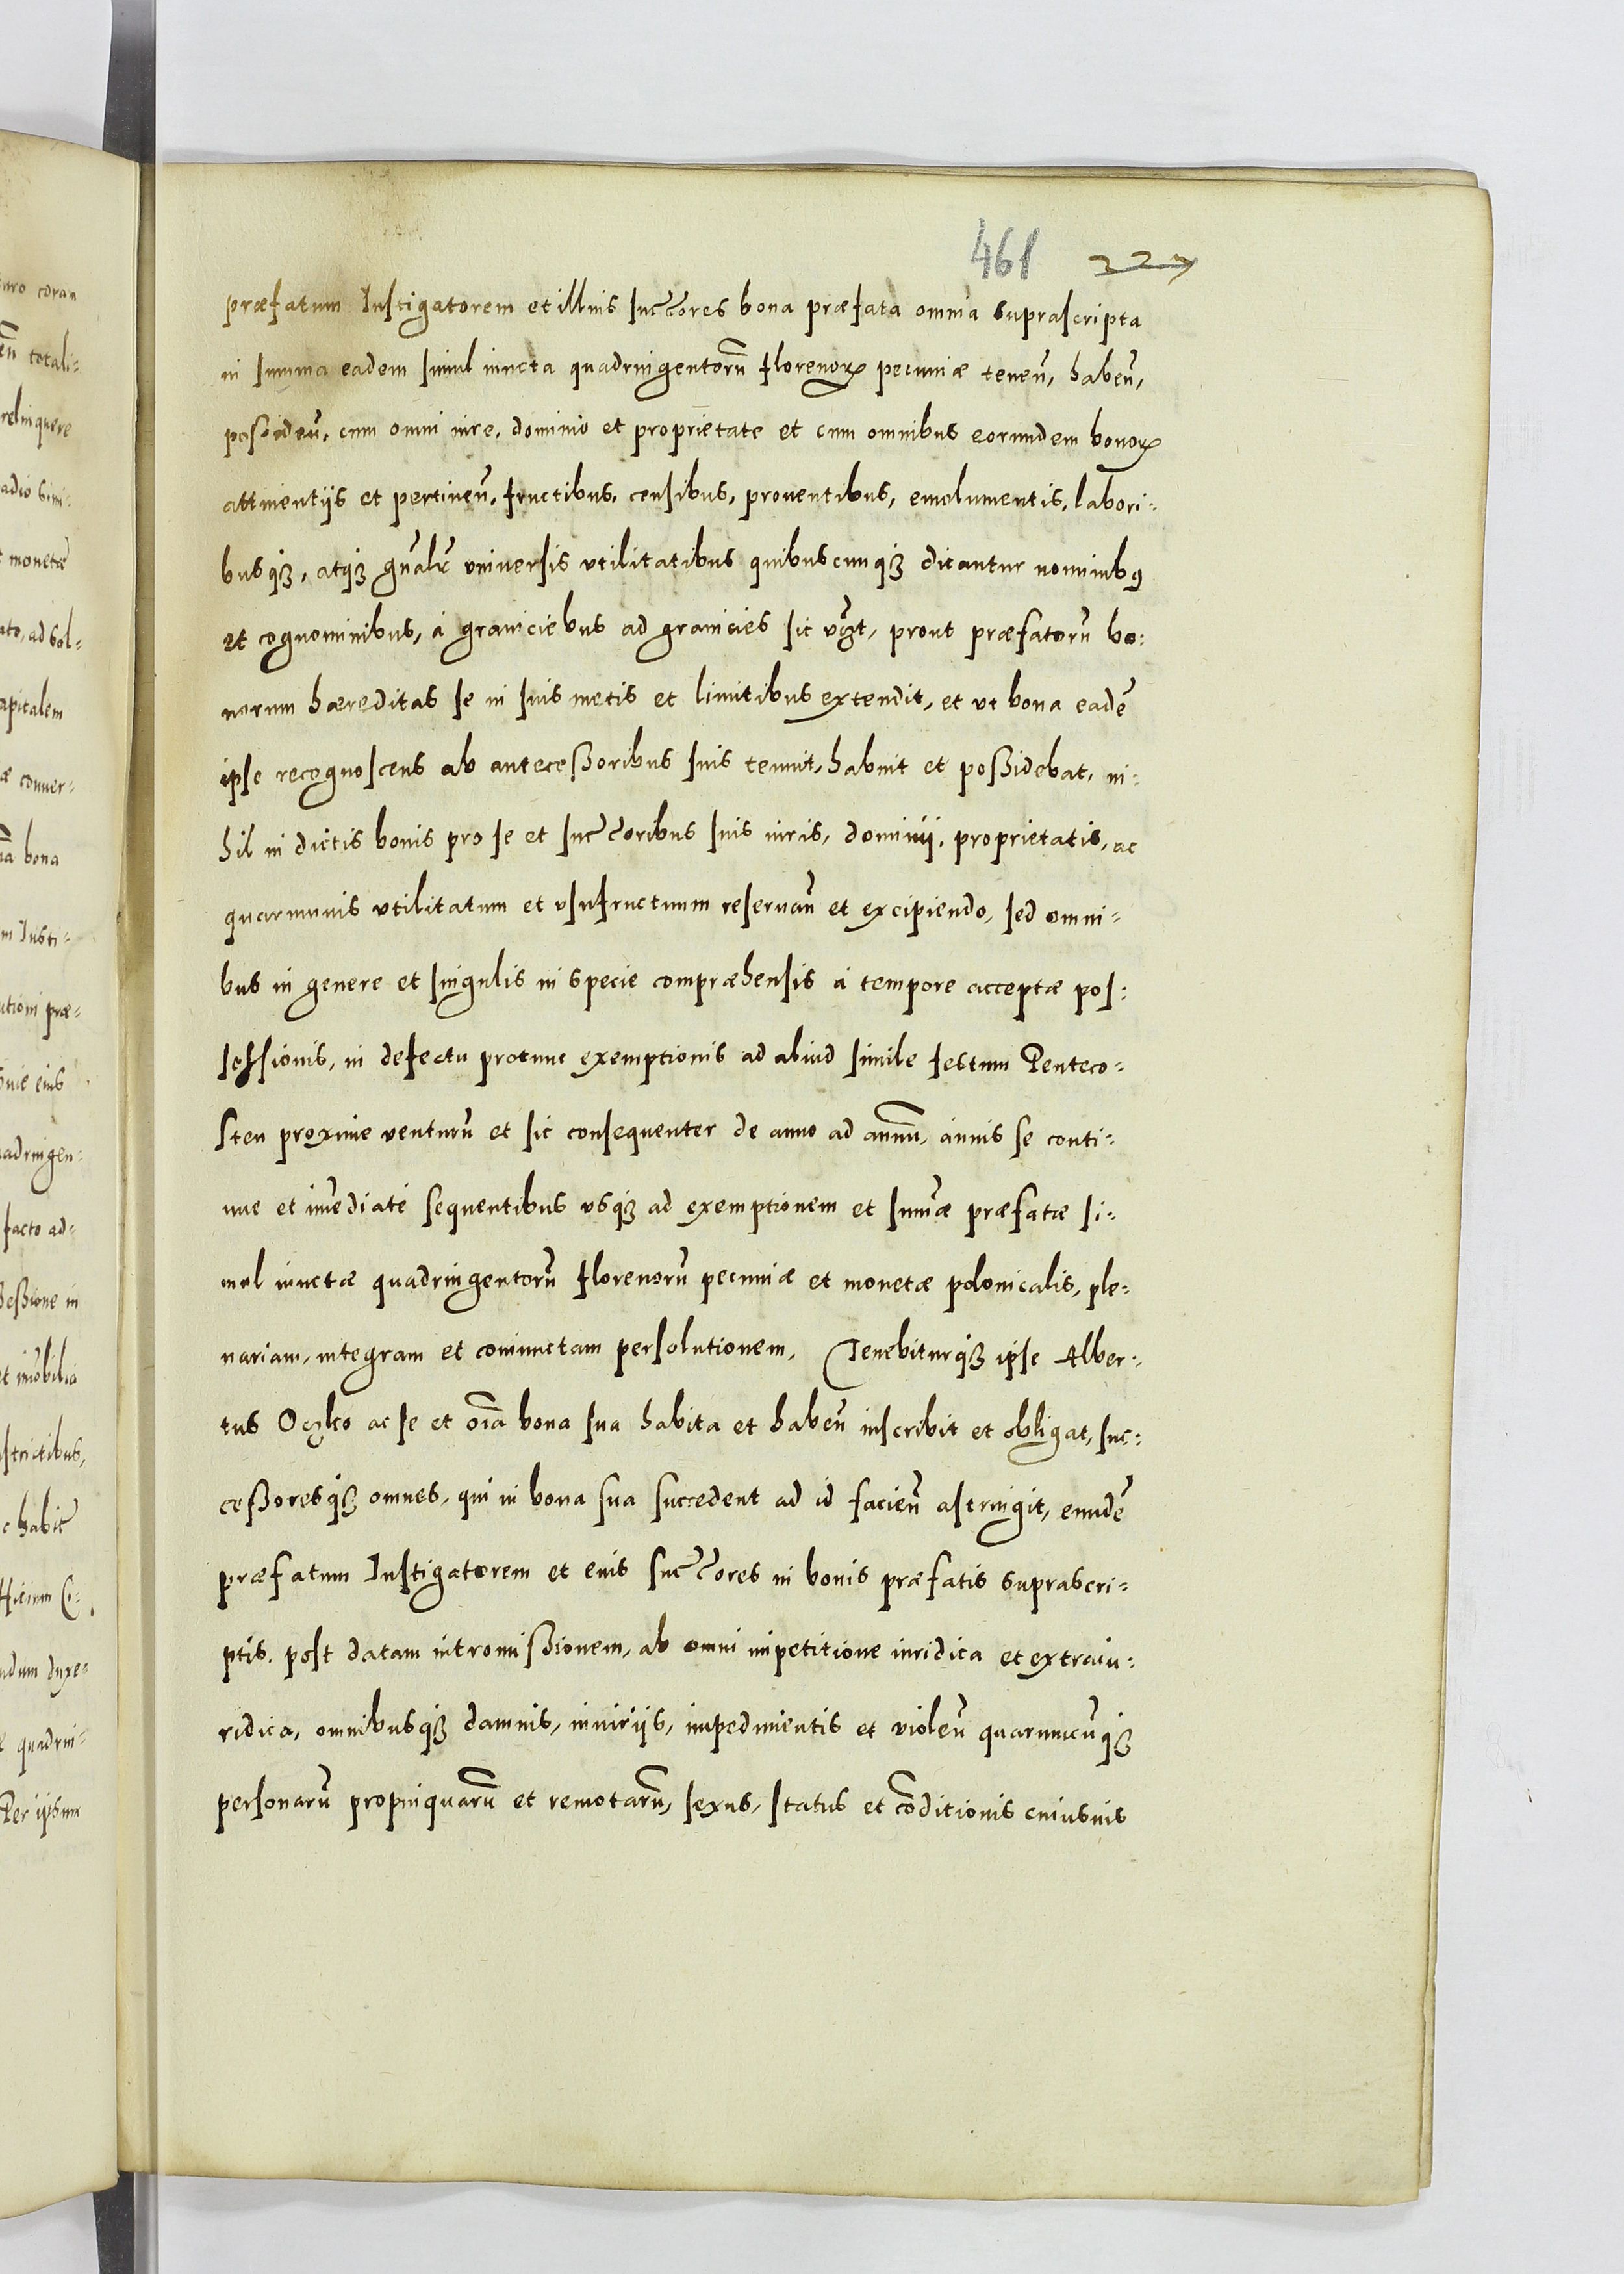 461 227
præfatum Instigatorem et illius succ̄ores bona præfata omnia suprascripta
in summa eadem simul iuncta quadringentorū florenorꝝ pecuniæ teneñ, habeñ,
possideñ, cum omni iure, dominio et proprietate et cum omnibus eorundem bonorꝝ
attinentijs et pertineñ, fructibus, censibus, prouentibus, emolumentis, labori-
busqꝫ, atqꝫ gn̄alr̄ vniuersis vtilitatibus quibuscunqꝫ dicantur nominibꝯ
et cognominibus, à graniciebus ad granicies sic vꝫt, prout præfatorū bo:
norum hæreditas se in suis metis et limitibus extendit, et vt bona eadē
ipse recognoscens ab antecessoribus suis tenuit, habuit et possidebat, ni-
hil in dictis bonis pro se et succ̄oribus suis iuris, dominij, proprietatis, ac
quarumuis vtilitatum et vsufructuum reseruañ et excipiendo, sed omni-
bus in genere et singulis in specie compræhensis à tempore acceptæ pos:
sessionis, in defectu protunc exemptionis ad aliud simile festum Penteco-
sten proxime venturū et sic consequenter de anno ad annū, annis se conti-
nue et im̄ediatè sequentibus vsqꝫ ad exemptionem et sum̄æ præfatæ si-
mul iunctæ quadringentorū florenorū pecuniæ et monetæ polonicalis, ple-
nariam, integram et coniunctam persolutionem, Tenebiturqꝫ ipse Alber-
tus Oczko ac se et oīa bona sua habita et habeñ inscribit et obligat, suc:
cessoresqꝫ omnes, qui in bona sua succedent ad id facieñ astringit, eundē
præfatum Instigatorem et eius succ̄ores in bonis præfatis suprascri-
ptis, post datam intromissionem, ab omni impetitione iuridica et extraiu-
ridica, omnibusqꝫ damnis, iniurijs, impedimentis et violeñ quarumcūqꝫ
personarū propinquarū et remotarū, sexus, status et cōditionis cuiusuis